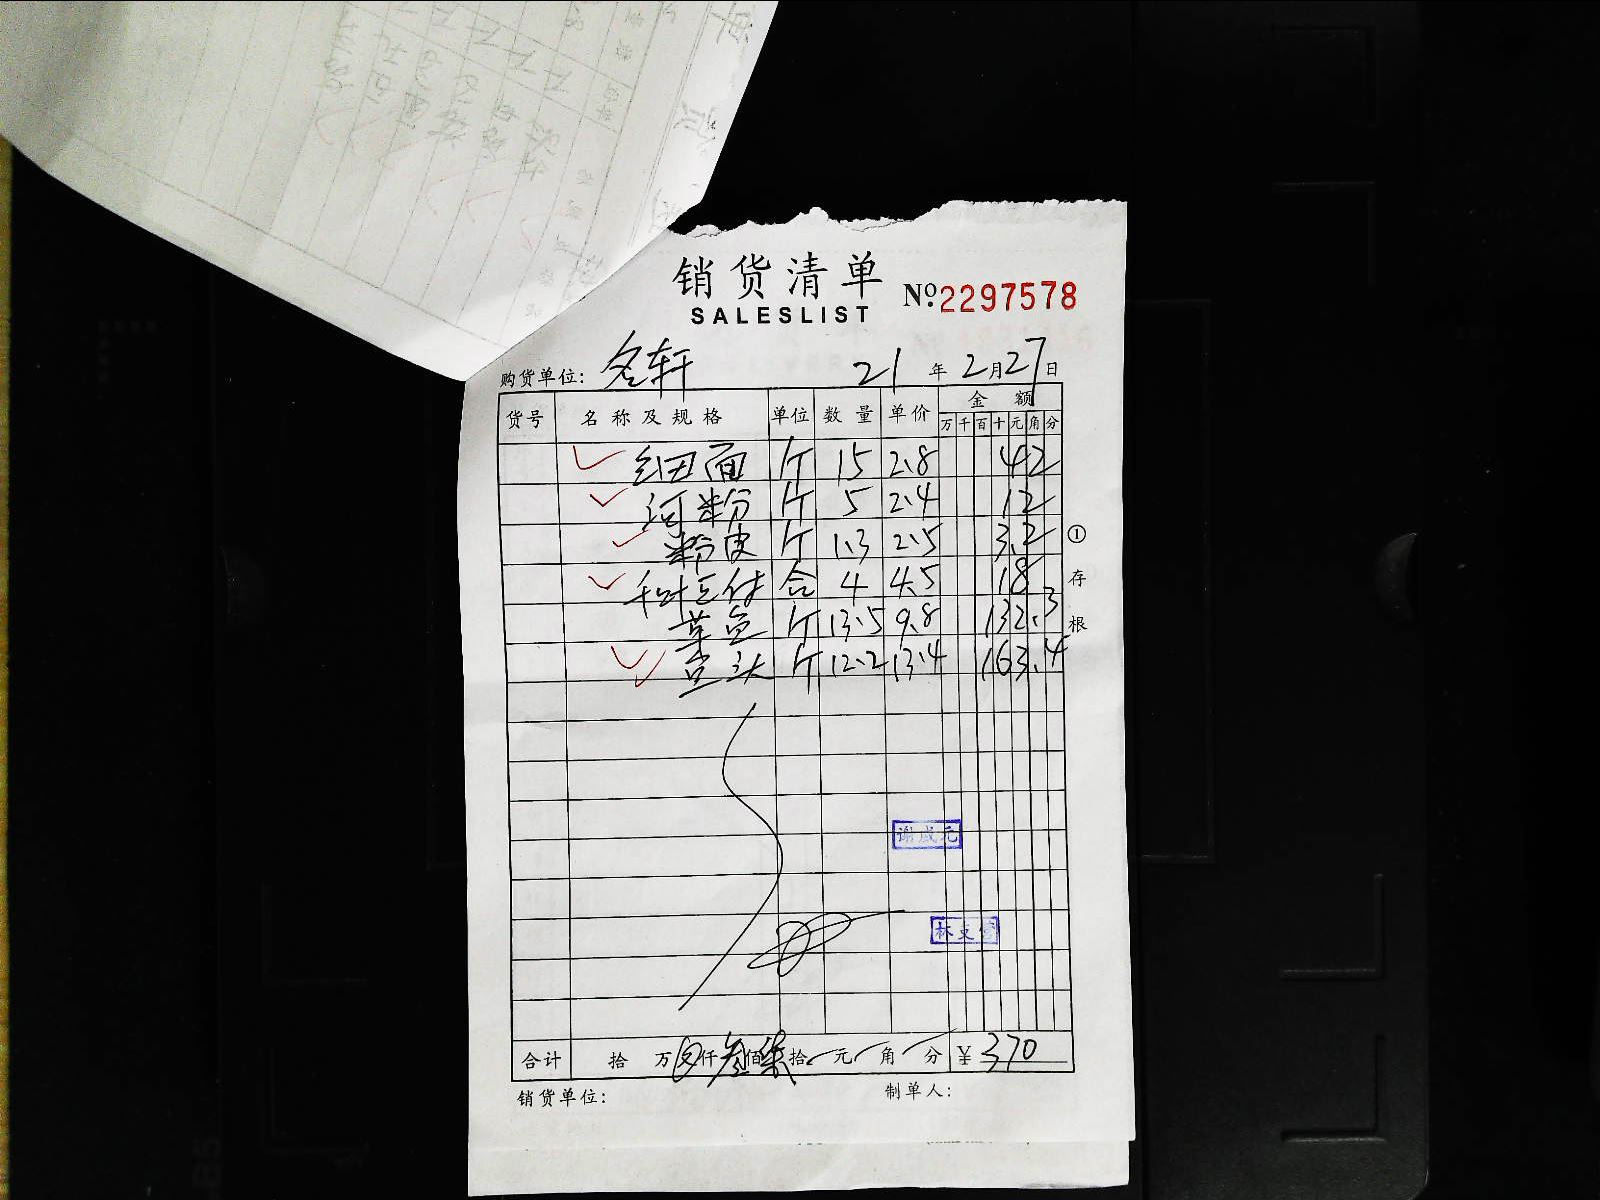 销货清单
SALESLIST
Nº 2297578
购货单位: 名轩 21 年 2 月 27 日
货号 名称及规格 单位 数量 单价 金额
万 千 百 十 元 角 分
细面 斤 15 2.8 42
河粉 斤 5 2.4 12
粉皮 斤 1.3 2.5 3.2
千叶豆付 合 4 4.5 18
草鱼 斤 13.5 9.8 132.3
鱼头 斤 12.2 13.4 163.4
① 存根
谢成元
合计 拾 万 仟 叁 佰 柒 拾 元 角 分 ¥ 370
销货单位: 制单人: